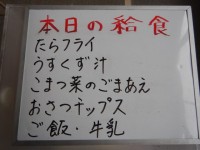 本日の給食
たらフライ
うすくず汁
こまつ菜のごまあえ
おさつチップス
ご飯・牛乳